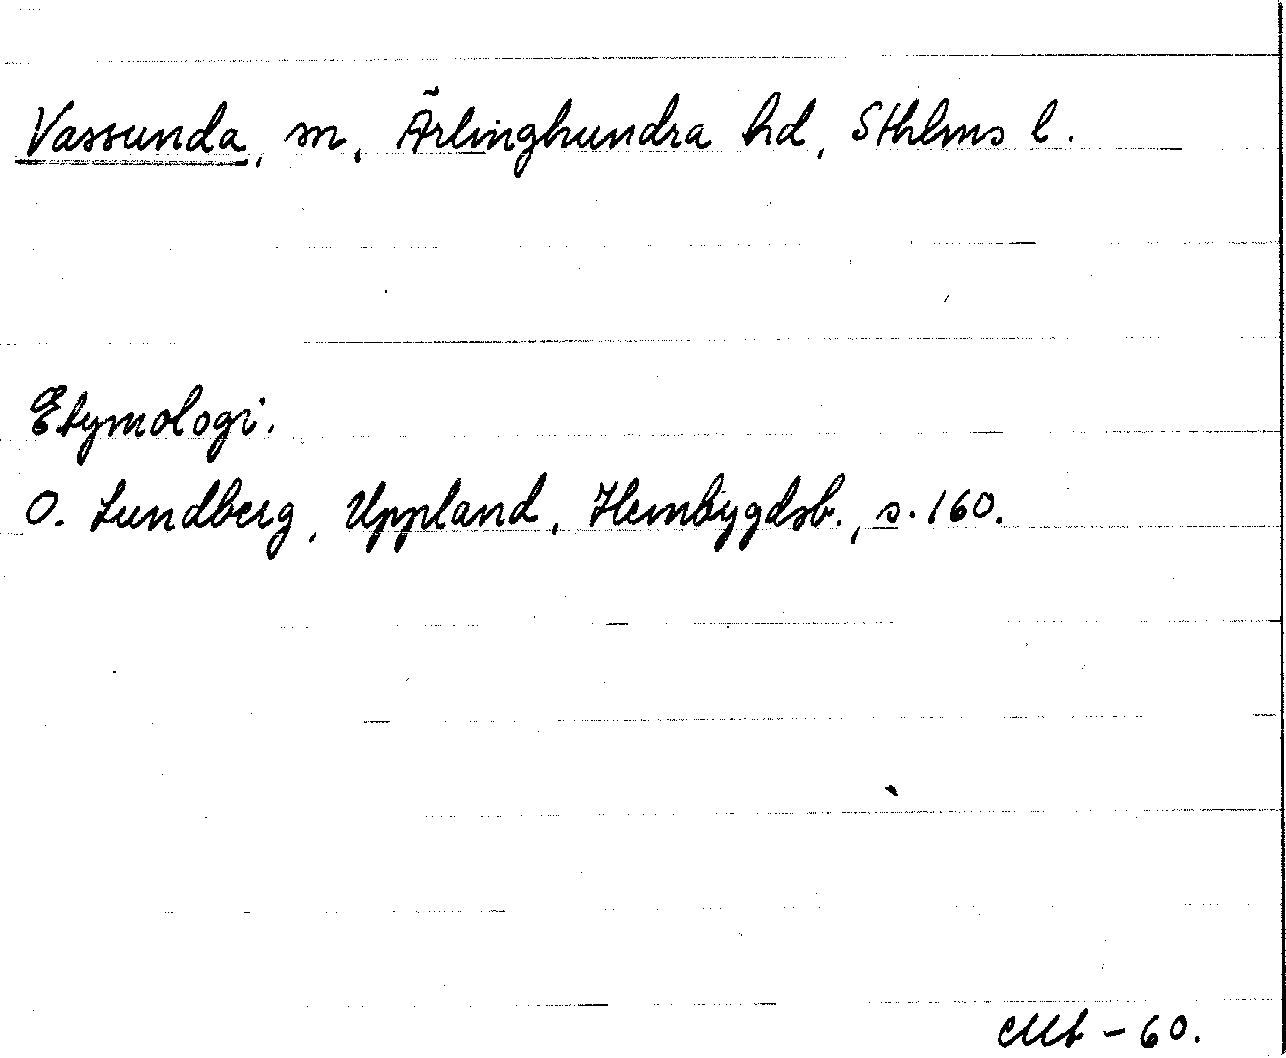 Vassunda, sn, Ärlinghundra hd, Sthlms l.
Etymologi.
O. Lundberg, Uppland, Hembygdsb., s. 160.
– 60.